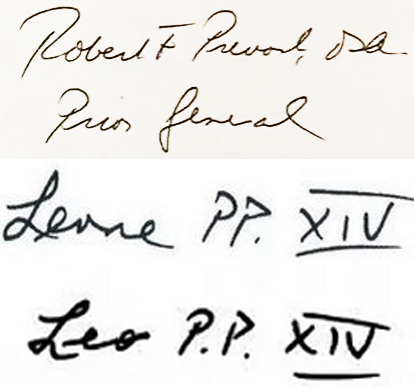 Robert F Prevost, OSA
Prior General
Leone P.P. XIV
Leo P.P. XIV